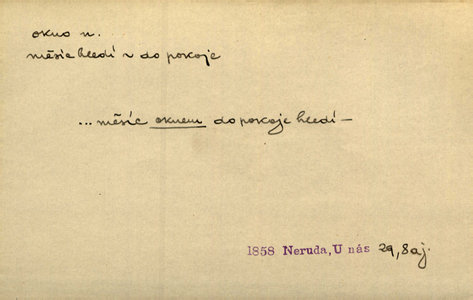 okno n.
měsíc hledí ~ do pokoje
... měsíc oknem do pokoje hledí —
1858 Neruda, U nás 29, 8 aj.